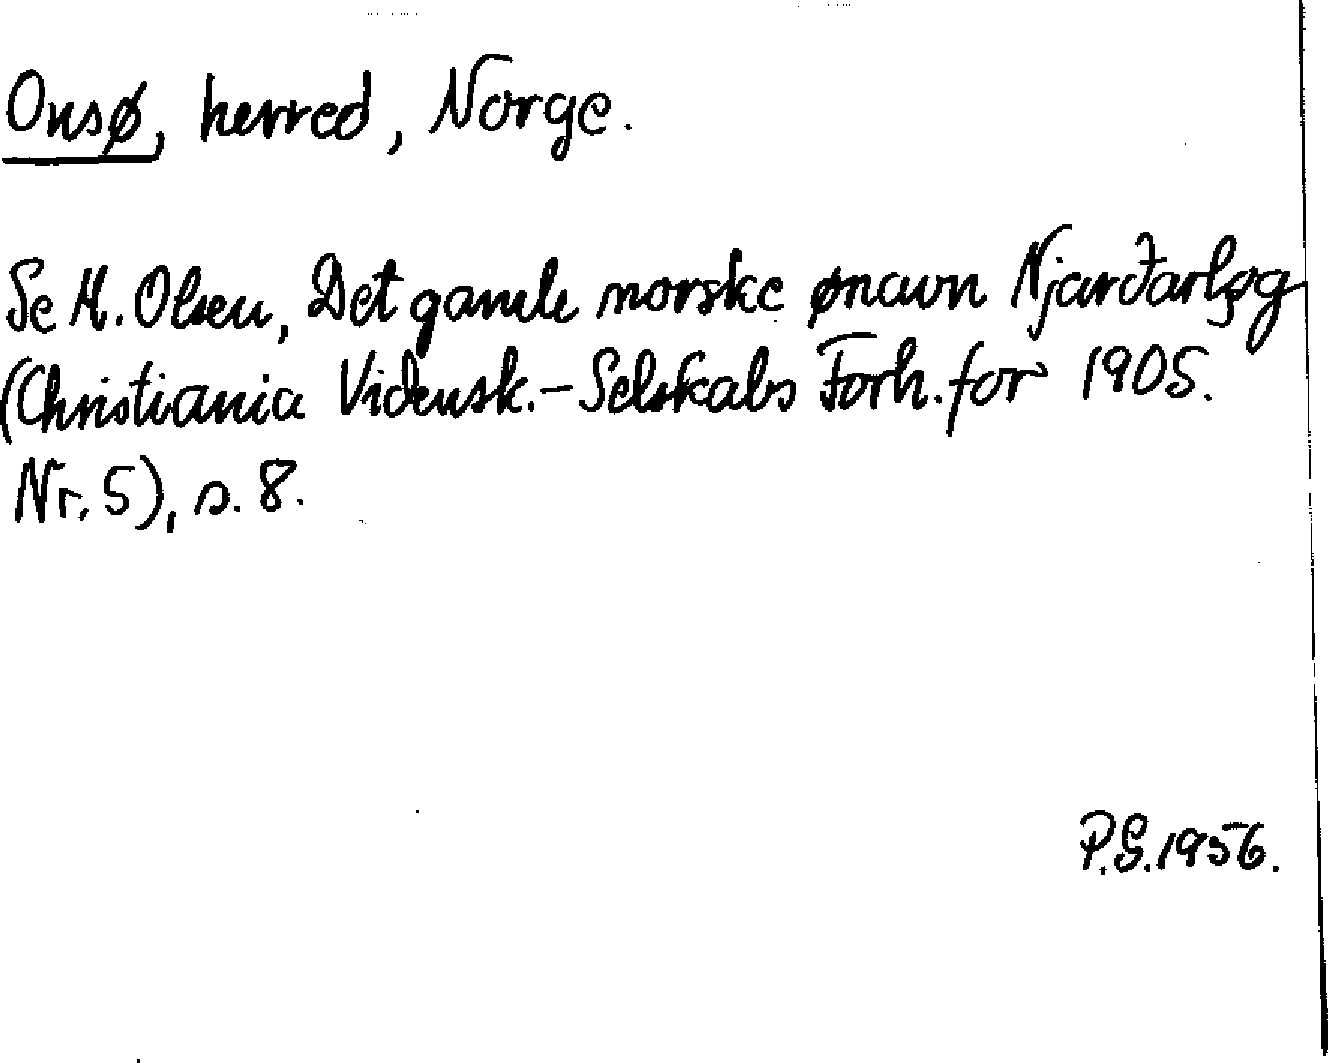 Onsø, herred, Norge.
Se M. Olsen, Det gamle norske ønavn Njarðarlǫg
(Christiania Vidensk.-Selskabs Forh. for 1905.
Nr. 5), s. 8.
P.G. 1956.